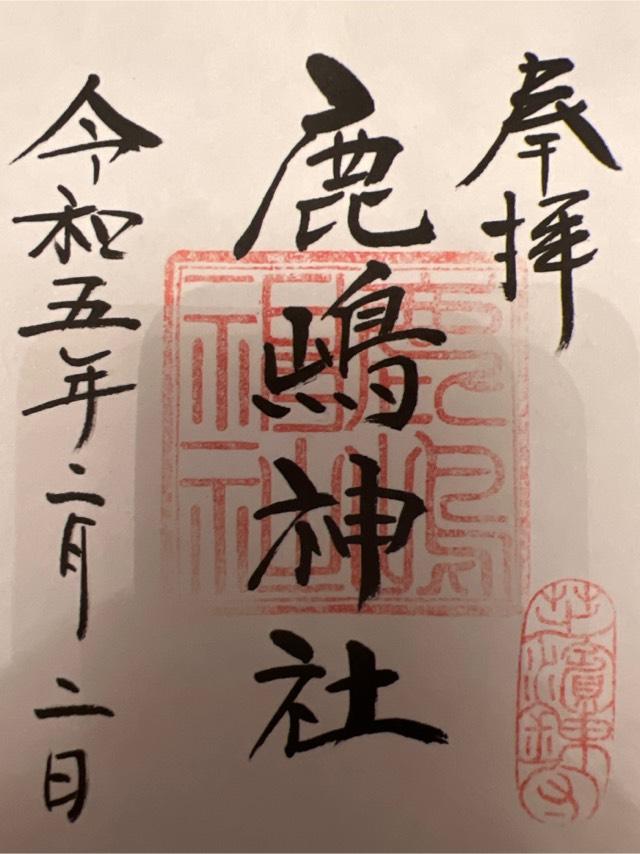 奉拝
鹿嶋神社
鹿嶋
神社
芝濱鎮守
令和五年二月二日